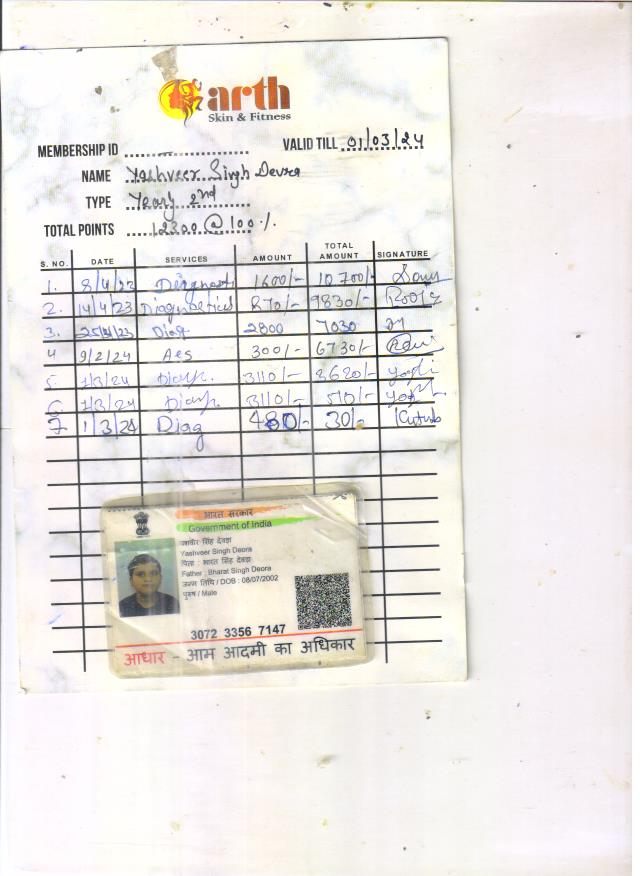 arth
Skin & Fitness
MEMBERSHIP ID VALID TILL 01/03/24
NAME Yashveer Singh Deora
TYPE Yearly 2nd
TOTAL POINTS 12300 @ 100%.
S. NO. DATE SERVICES AMOUNT TOTAL AMOUNT SIGNATURE
1. 8/4/23 Diagnosti 1600/- 10700/-
2. 14/4/23 Diagnostics 870/- 9830/-
3. 23 Diag 2800 7030
4 9/2/24 Aes 300/- 6730/-
5. 1/3/24 3110/- 3620/-
6 1/3/24 3110/- 510/-
7 1/3/24 Diag 480/- 30/-
भारत सरकार
Government of India
सिंह देवड़ा
Yashveer Singh Deora
पिता : भारत सिंह देवड़ा
Father : Bharat Singh Deora
जन्म तिथि / DOB : 08/07/2002
पुरुष / Male
3072 3356 7147
आधार - आम आदमी का अधिकार